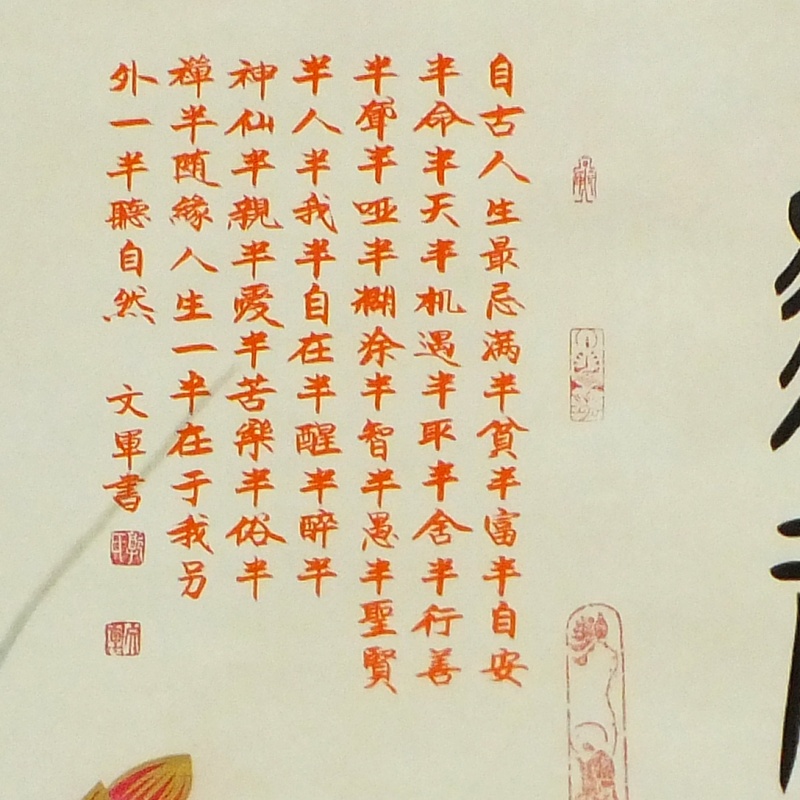 自古人生最忌满半贫半富半自安
半命半天半机遇半取半舍半行善
半聋半哑半糊涂半智半愚半聖賢
半人半我半自在半醒半醉半
神仙半親半愛半苦樂半俗半
禪半随緣人生一半在于我另
外一半聽自然
文軍書